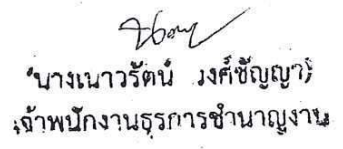 (นางเนาวรัตน์ วงศ์ชัญญา)
เจ้าพนักงานธุรการชำนาญงาน